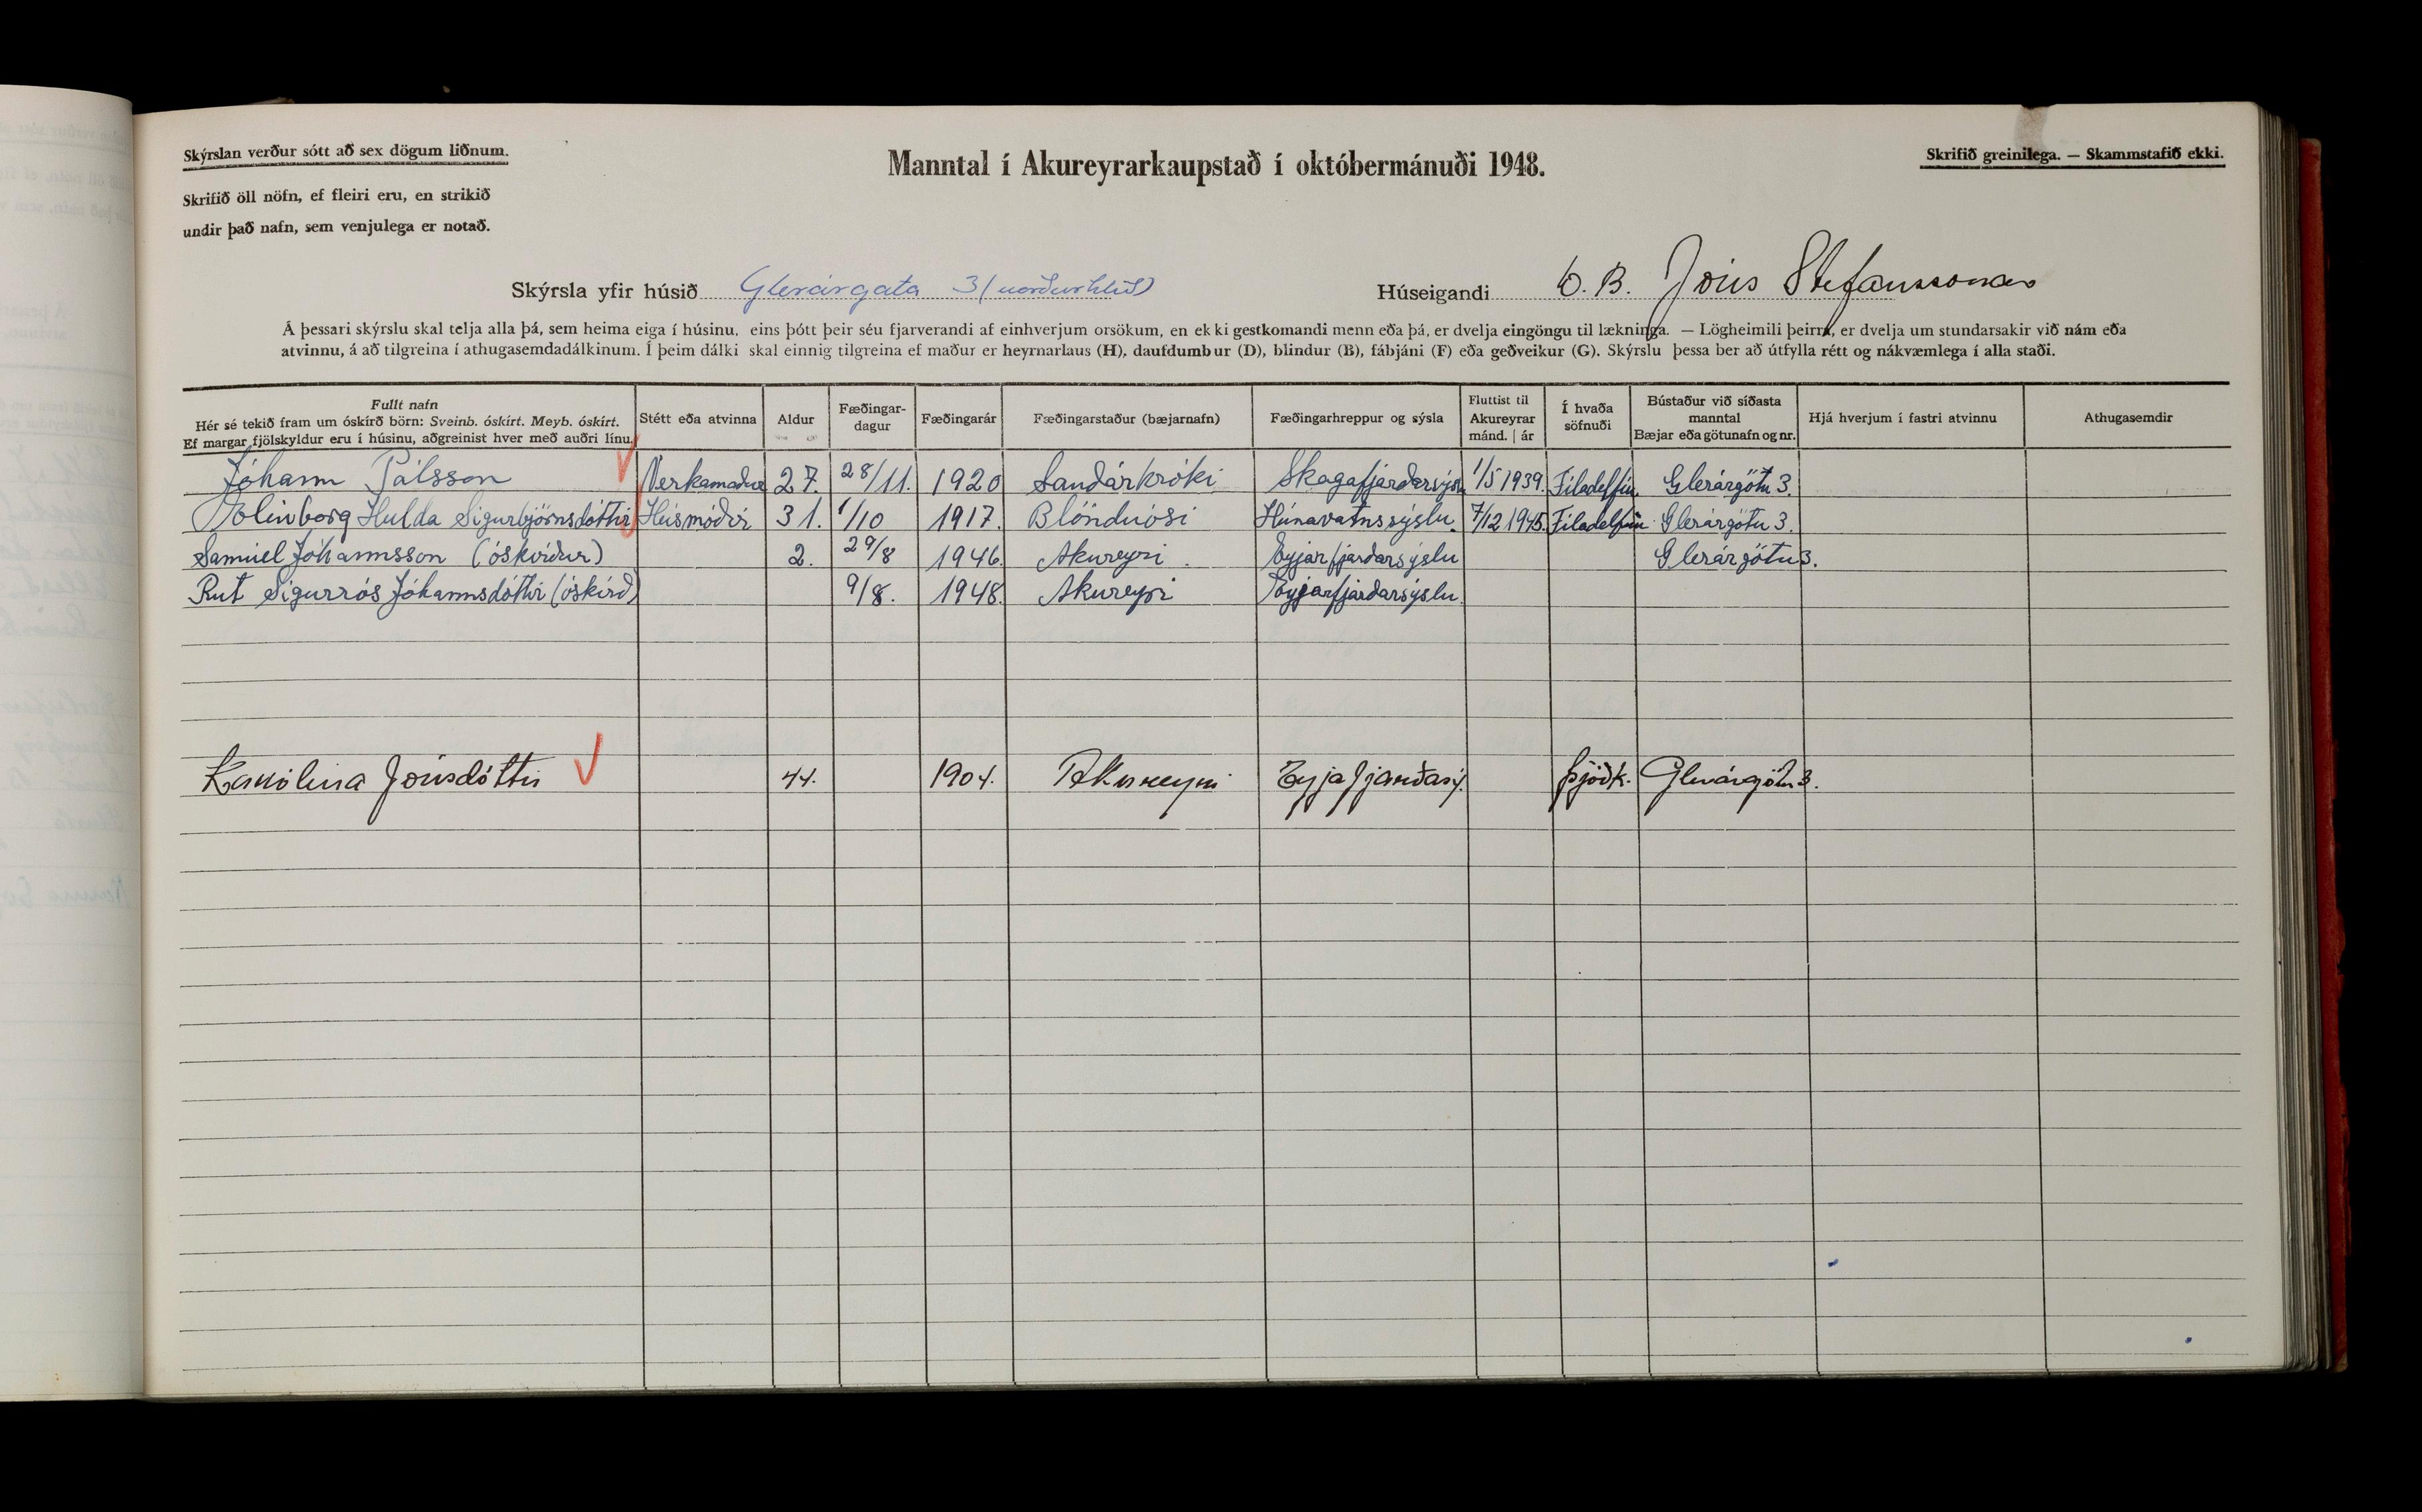 Skýrslan verður sótt að sex dögum liðnum.
Manntal í Akureyrarkaupstað í októbermánuði 1948.
Skrifið greinilega. — Skammstafið ekki.
Skrifið öll nöfn, ef fleiri eru, en strikið
undir það nafn, sem venjulega er notað.
Skýrsla yfir húsið Glerárgata 3 (norðurhlið)
Húseigandi D. B. Jóns Stefánssonar
Á þessari skýrslu skal telja alla þá, sem heima eiga í húsinu, eins þótt þeir séu fjarverandi af einhverjum orsökum, en ekki gestkomandi menn eða þá, er dvelja eingöngu til lækninga. — Lögheimili þeirra, er dvelja um stundarsakir við nám eða
atvinnu, á að tilgreina í athugasemdadálkinum. Í þeim dálki skal einnig tilgreina ef maður er heyrnarlaus (H), daufdumbur (D), blindur (B), fábjáni (F) eða geðveikur (G). Skýrslu þessa ber að útfylla rétt og nákvæmlega í alla staði.
Fullt nafn
Hér sé tekið fram um óskírð börn: Sveinb. óskírt. Meyb. óskírt.
Ef margar fjölskyldur eru í húsinu, aðgreinist hver með auðri línu.
Stétt eða atvinna
Aldur
Fæðingar-
dagur
Fæðingarár
Fæðingarstaður (bæjarnafn)
Fæðingarhreppur og sýsla
Fluttist til
Akureyrar
mánd. | ár
Í hvaða
söfnuði
Bústaður við síðasta
manntal
Bæjar eða götunafn og nr.
Hjá hverjum í fastri atvinnu
Athugasemdir
Jóhann Pálsson Verkamaður 27. 28/11. 1920 Sauðárkróki Skagafjarðarsýslu 1/5 1939. Filadelfíu. Glerárgötu 3.
Ólínborg Hulda Sigurbjörnsdóttir Húsmóðir 31. 1/10 1917. Blönduósi Húnavatnssýslu. 7/12 1945. Filadelfíu Glerárgötu 3.
Samúel Jóhannsson (óskírður) 2. 29/8 1946. Akureyri. Eyjarfjarðarsýslu Glerárgötu 3.
Rut Sigurrós Jóhannsdóttir (óskírð) 9/8. 1948. Akureyri Eyjarfjarðarsýslu.
Karólína Jónsdóttir 44. 1904. Akureyri Eyjafjarðarsý. Þjóðk. Glerárgötu 3.